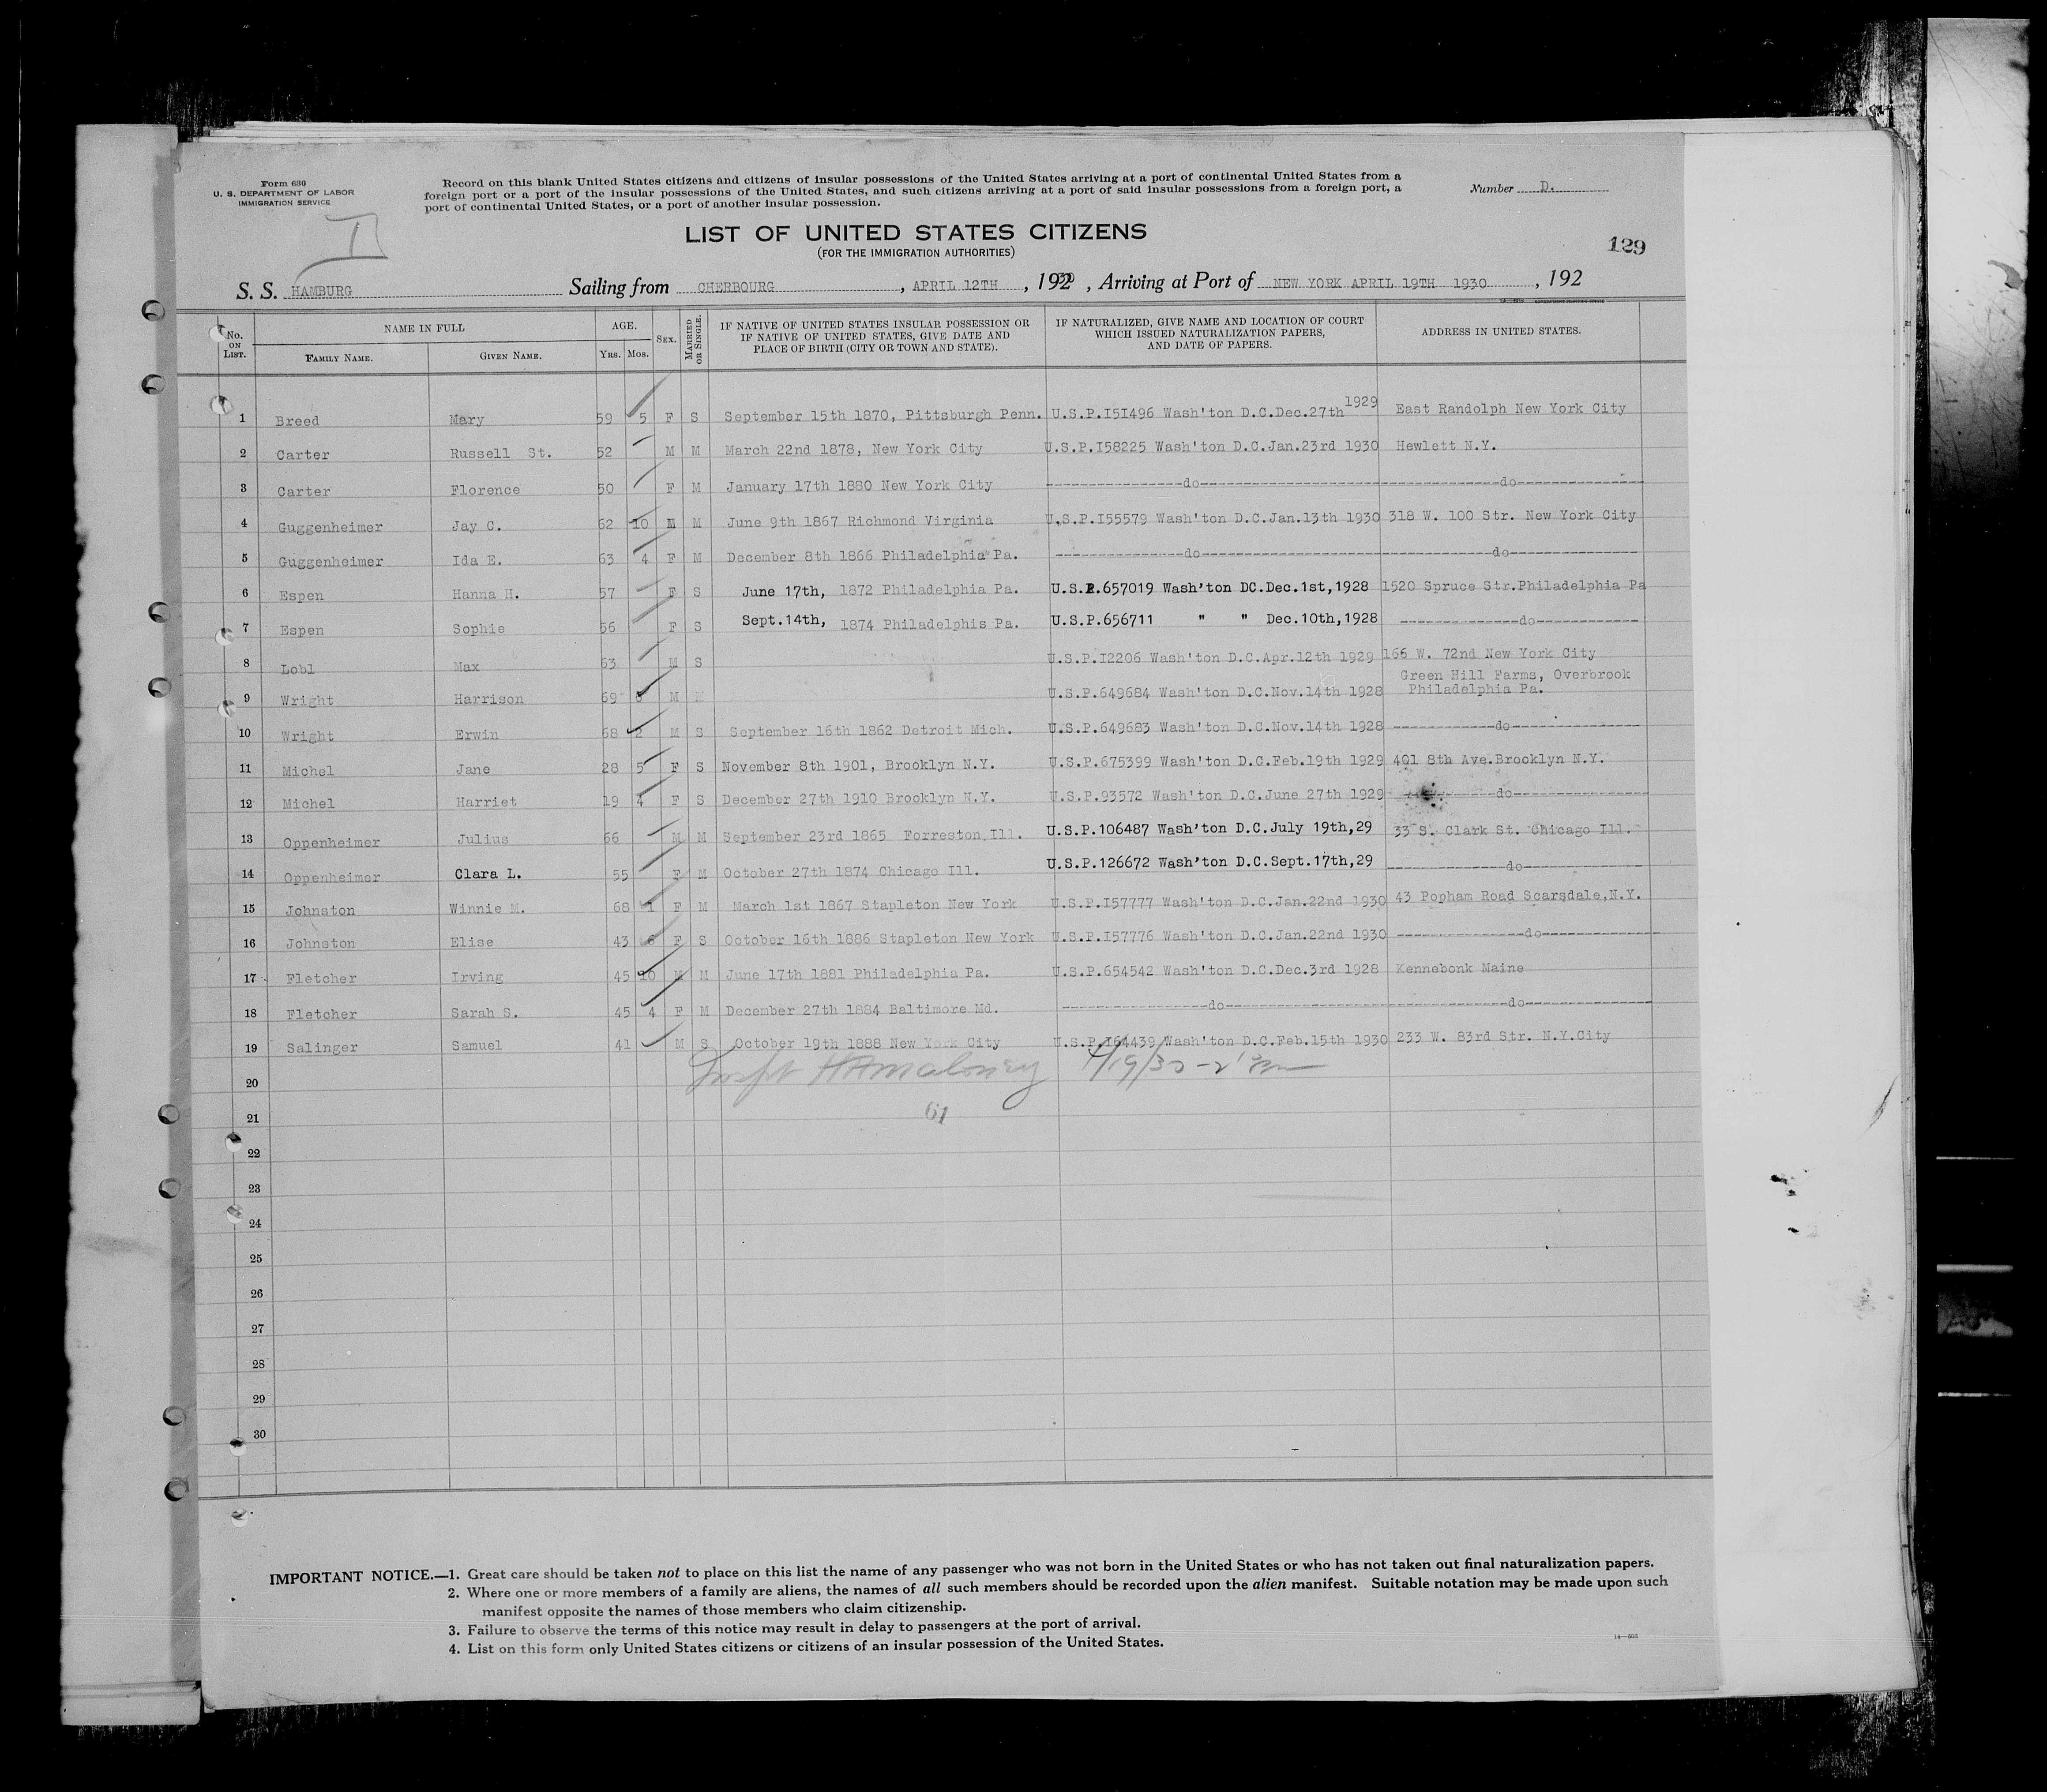 Form 630
U. S. DEPARTMENT OF LABOR
IMMIGRATION SERVICE
I
Record on this blank United States citizens and citizens of insular possessions of the United States arriving at a port of continental United States from a
foreign port or a port of the insular possessions of the United States, and such citizens arriving at a port of said insular possessions from a foreign port, a
port of continental United States, or a port of another insular possession.
Number D.
LIST OF UNITED STATES CITIZENS
(FOR THE IMMIGRATION AUTHORITIES)
129
S. S. HAMBURG Sailing from CHERBOURG, APRIL 12TH, 1930, Arriving at Port of NEW YORK APRIL 19TH 1930, 192
No. ON LIST. NAME IN FULL FAMILY NAME. GIVEN NAME. AGE. YRS. MOS. SEX. MARRIED OR SINGLE. IF NATIVE OF UNITED STATES INSULAR POSSESSION OR IF NATIVE OF UNITED STATES, GIVE DATE AND PLACE OF BIRTH (CITY OR TOWN AND STATE). IF NATURALIZED, GIVE NAME AND LOCATION OF COURT WHICH ISSUED NATURALIZATION PAPERS, AND DATE OF PAPERS. ADDRESS IN UNITED STATES.
1 Breed Mary 59 5 F S September 15th 1870, Pittsburgh Penn. U.S.P.I5I496 Wash'ton D.C.Dec.27th 1929 East Randolph New York City
2 Carter Russell St. 52 M M March 22nd 1878, New York City U.S.P.I58225 Wash'ton D.C.Jan.23rd 1930 Hewlett N.Y.
3 Carter Florence 50 F M January 17th 1880 New York City do do
4 Guggenheimer Jay C. 62 10 M M June 9th 1867 Richmond Virginia U.S.P.I55579 Wash'ton D.C.Jan.13th 1930 318 W. 100 Str. New York City
5 Guggenheimer Ida E. 63 4 F M December 8th 1866 Philadelphia Pa. do do
6 Espen Hanna H. 57 F S June 17th, 1872 Philadelphia Pa. U.S.P.657019 Wash'ton DC.Dec.1st,1928 1520 Spruce Str.Philadelphia Pa
7 Espen Sophie 56 F S Sept.14th, 1874 Philadelphis Pa. U.S.P.656711 " " Dec.10th,1928 do
8 Lobl Max 63 M S U.S.P.I2206 Wash'ton D.C.Apr.12th 1929 166 W. 72nd New York City
9 Wright Harrison 69 M M U.S.P.649684 Wash'ton D.C.Nov.14th 1928 Green Hill Farms, Overbrook Philadelphia Pa.
10 Wright Erwin 68 2 M S September 16th 1862 Detroit Mich. U.S.P.649683 Wash'ton D.C.Nov.14th 1928 do
11 Michel Jane 28 5 F S November 8th 1901, Brooklyn N.Y. U.S.P.675399 Wash'ton D.C.Feb.19th 1929 401 8th Ave.Brooklyn N.Y.
12 Michel Harriet 19 4 F S December 27th 1910 Brooklyn N.Y. U.S.P.93572 Wash'ton D.C.June 27th 1929 do
13 Oppenheimer Julius 66 M M September 23rd 1865 Forreston,Ill. U.S.P.106487 Wash'ton D.C.July 19th,29 33 S. Clark St. Chicago Ill.
14 Oppenheimer Clara L. 55 F M October 27th 1874 Chicago Ill. U.S.P.126672 Wash'ton D.C.Sept.17th,29 do
15 Johnston Winnie M. 68 1 F M March 1st 1867 Stapleton New York U.S.P.I57777 Wash'ton D.C.Jan.22nd 1930 43 Popham Road Scarsdale,N.Y.
16 Johnston Elise 43 6 F S October 16th 1886 Stapleton New York U.S.P.I57776 Wash'ton D.C.Jan.22nd 1930 do
17 Fletcher Irving 45 10 M M June 17th 1881 Philadelphia Pa. U.S.P.654542 Wash'ton D.C.Dec.3rd 1928 Kennebonk Maine
18 Fletcher Sarah S. 45 4 F M December 27th 1884 Baltimore Md. do do
19 Salinger Samuel 41 M S October 19th 1888 New York City U.S.P.I64439 Wash'ton D.C.Feb.15th 1930 233 W. 83rd Str. N.Y.City
20 Maloney 4/19/30
21 61
22
23
24
25
26
27
28
29
30
IMPORTANT NOTICE.—1. Great care should be taken not to place on this list the name of any passenger who was not born in the United States or who has not taken out final naturalization papers.
2. Where one or more members of a family are aliens, the names of all such members should be recorded upon the alien manifest. Suitable notation may be made upon such
manifest opposite the names of those members who claim citizenship.
3. Failure to observe the terms of this notice may result in delay to passengers at the port of arrival.
4. List on this form only United States citizens or citizens of an insular possession of the United States.